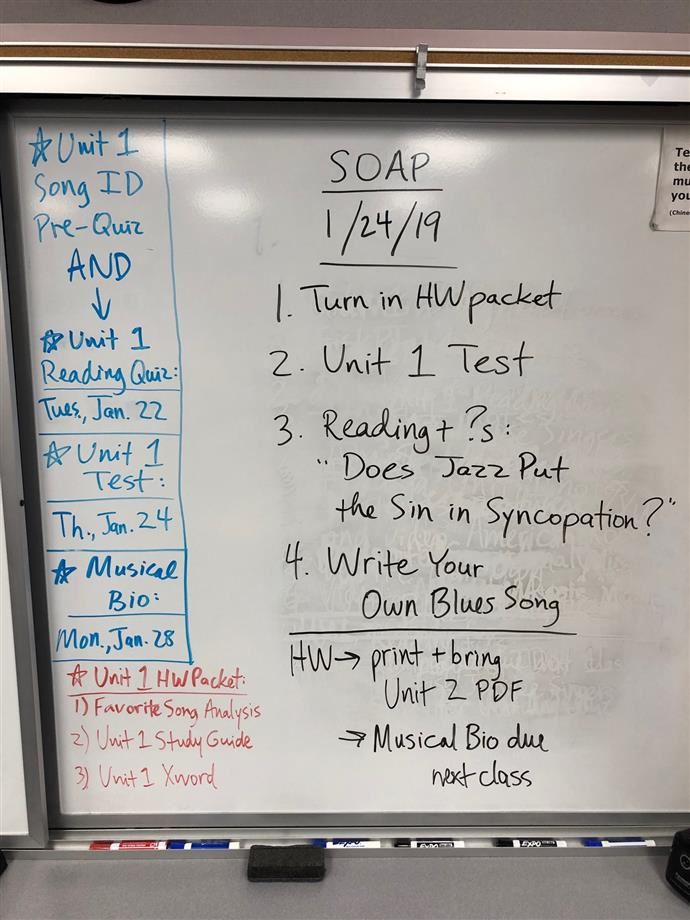 ☆ Unit 1
Song ID
Pre-Quiz
AND
↓
☆ Unit 1
Reading Quiz:
Tues., Jan. 22
☆ Unit 1
Test:
Th., Jan. 24
☆ Musical
Bio:
Mon., Jan. 28
☆ Unit 1 HW Packet:
1) Favorite Song Analysis
2) Unit 1 Study Guide
3) Unit 1 Xword
SOAP
1/24/19
1. Turn in HW packet
2. Unit 1 Test
3. Reading + ?s:
"Does Jazz Put
the Sin in Syncopation?"
4. Write Your
Own Blues Song
HW → print + bring
Unit 2 PDF
→ Musical Bio due
next class
Te
the
mu
you
(Chine
EXPO
EXPO
EXPO
EXPO